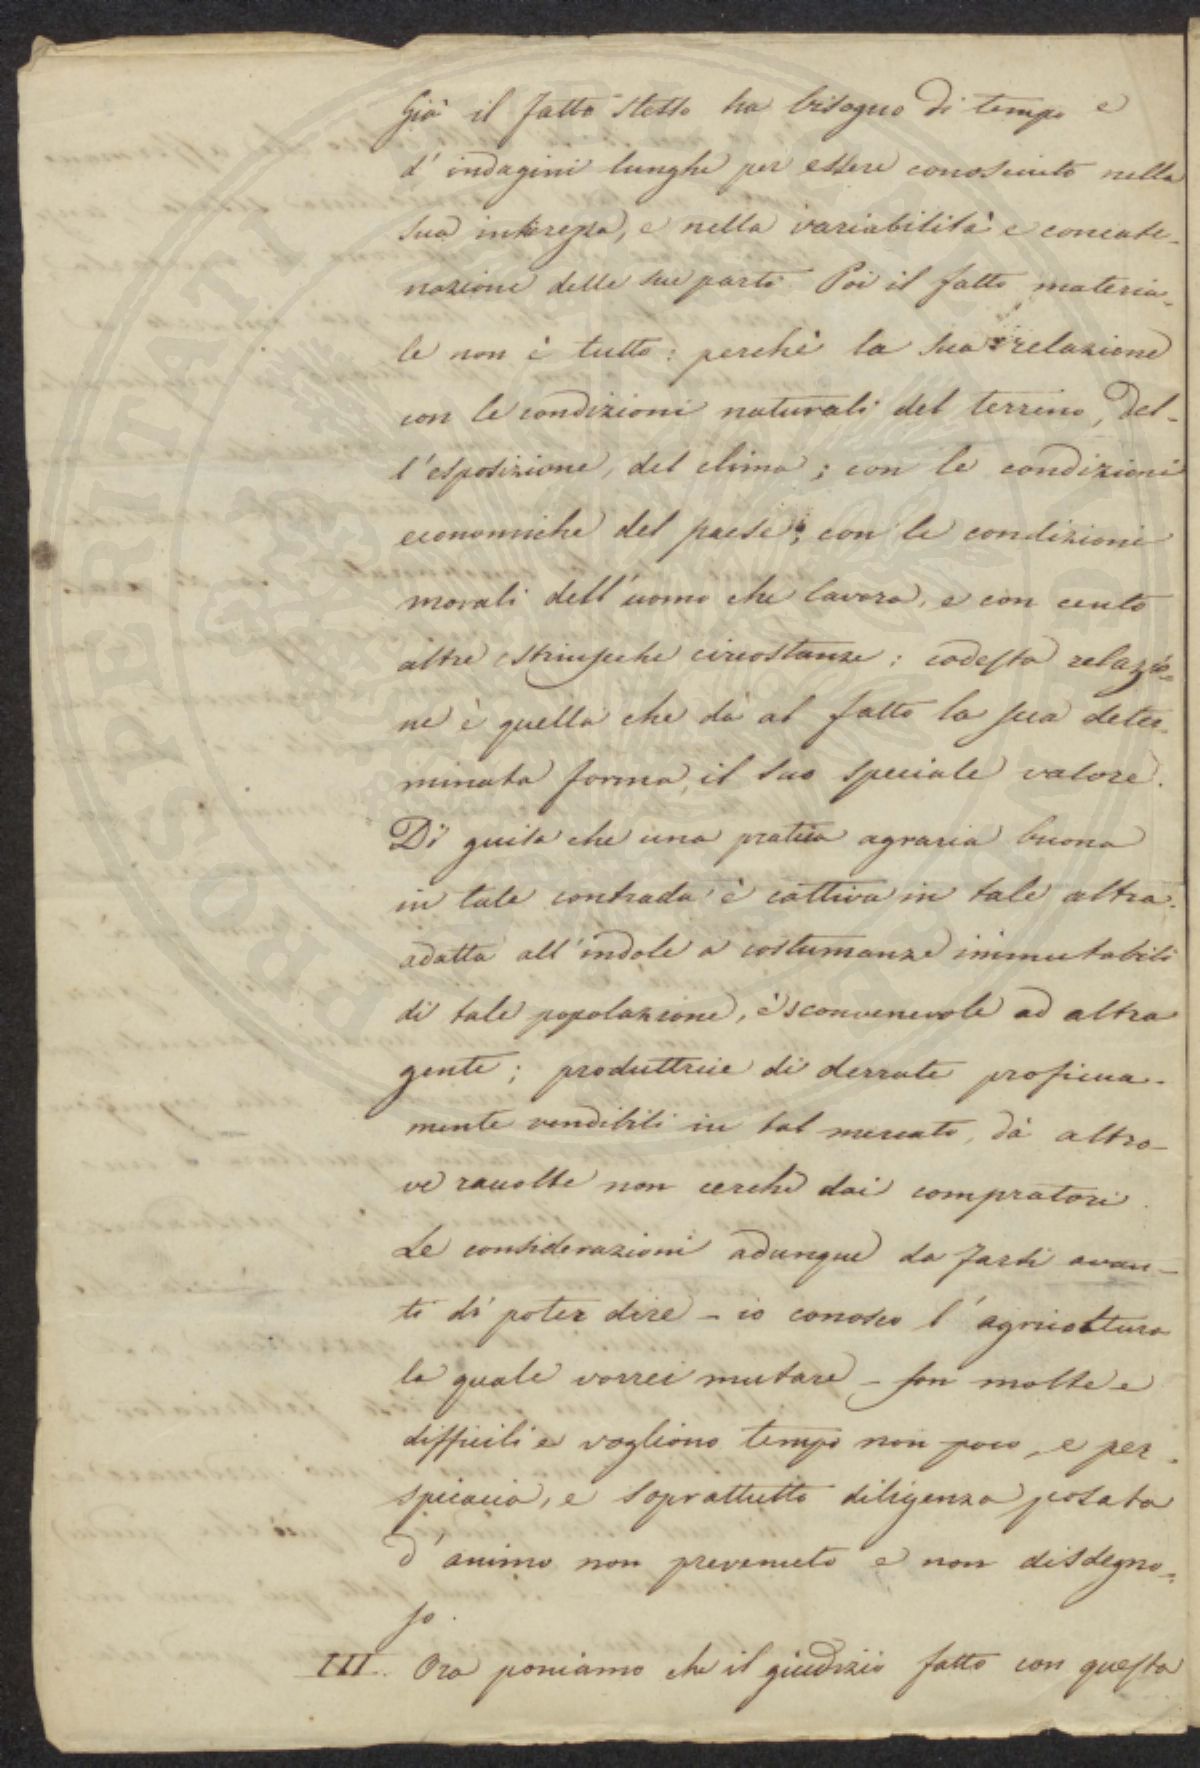 Già il fatto stesso ha bisogno di tempo e
d'indagini lunghe per essere conosciuto nella
sua interezza, e nella variabilità e concate-
nazione delle sue parti. Poi il fatto materia-
le non è tutto: perchè la sua relazione
con le condizioni naturali del terreno, del-
l'esposizione, del clima; con le condizioni
economiche del paese; con le condizioni
morali dell'uomo che lavora, e con cento
altre estrinseche circostanze: codesta relazio-
ne è quella che dà al fatto la sua deter-
minata forma, il suo speciale valore.
Di guisa che una pratica agraria buona
in tale contrada è cattiva in tale altra.
adatta all'indole a costumanze immutabili
di tale popolazione, è sconvenevole ad altra
gente; produttrice di derrate proficua-
mente vendibili in tal mercato, dà altro-
ve raccolte non cerche dai compratori.
Le considerazioni adunque da farsi avan-
ti di poter dire - io conosco l'agricoltura
la quale vorrei mutare - son molte e
difficili e vogliono tempo non poco, e per-
spicacia, e soprattutto diligenza posata
d'animo non prevenuto e non disdegno-
so.
III. Ora poniamo che il giudizio fatto con questa
PROSPERITATI